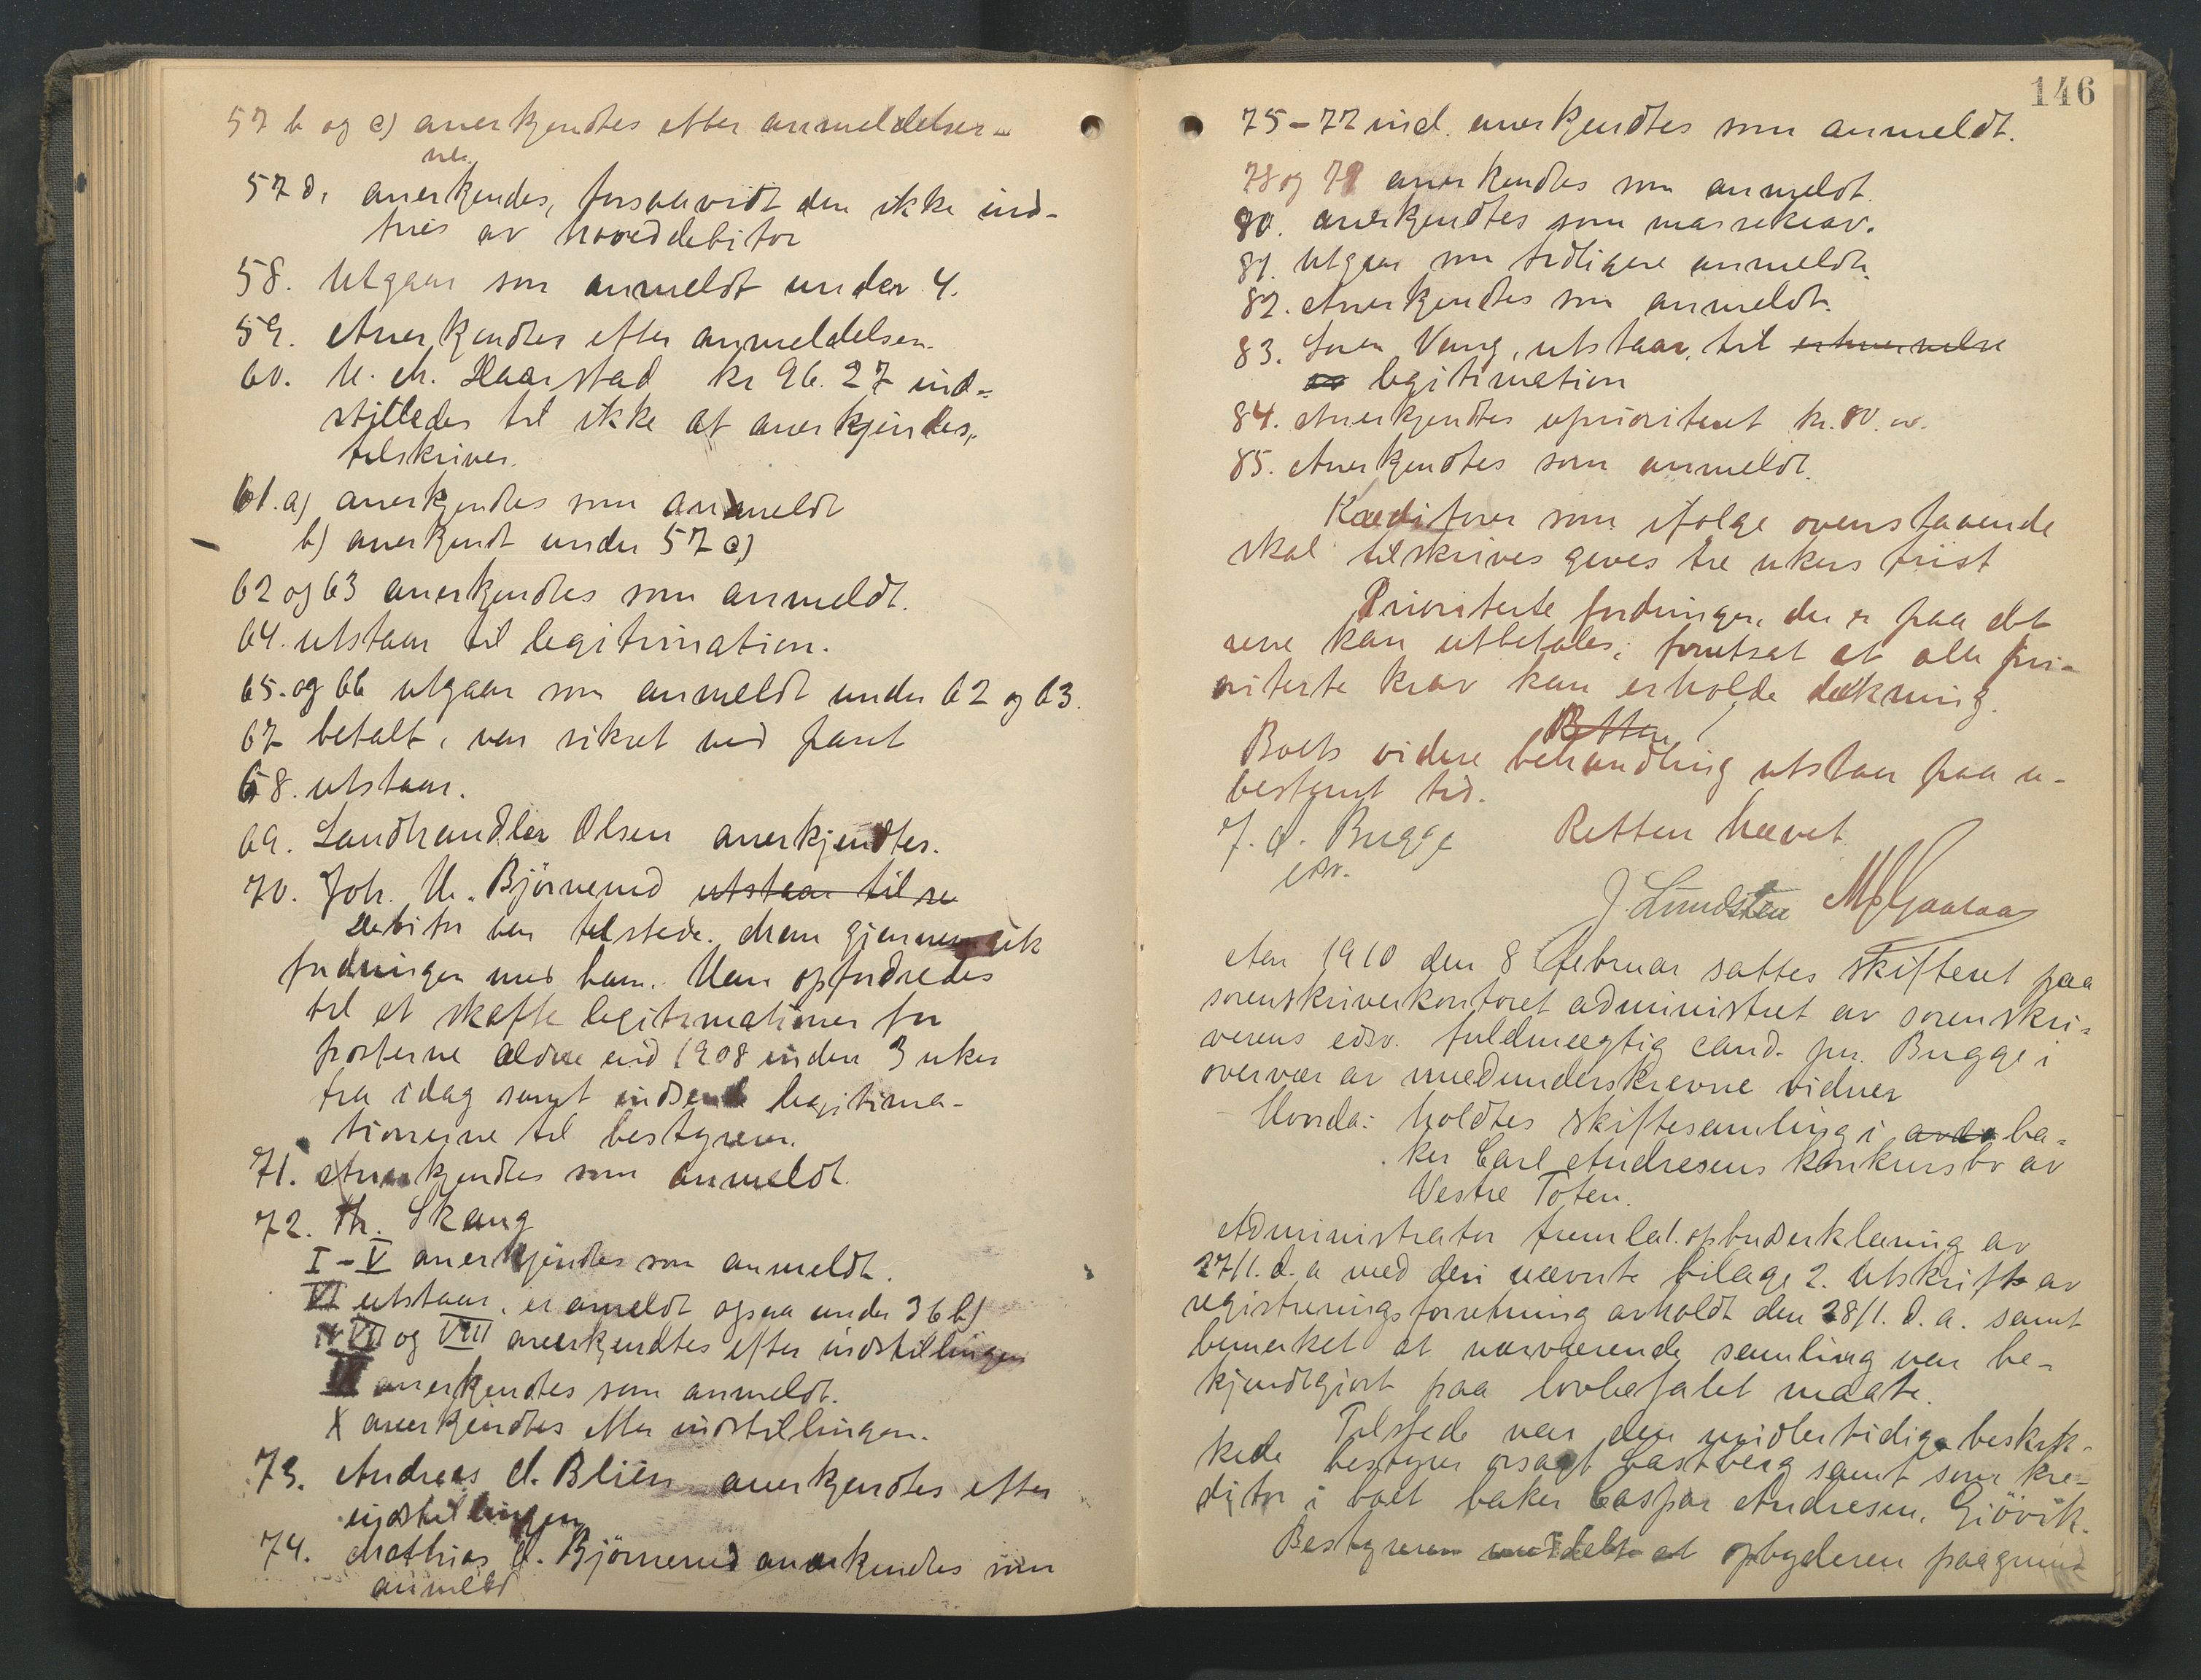 57 b og c) anerkjendtes efter anmeldelser-
ne.
57 d, anerkjendes, forsaavidt den ikke ind-
fries av hoveddebitor
58. Utgaar som anmeldt under 4.
59. Anerkjendtes efter anmeldelsen.
60. M. Haarstad kr 96.27 ind-
stilledes til ikke at anerkjendes,
tilskrives.
61. a) anerkjendtes som anmeldt
b) anerkjendt under 57 c)
62 og 63 anerkjendtes som anmeldt.
64. utstaar til legitimation.
65. og 66 utgaar som anmeldt under 62 og 63.
67 betalt, var sikret ved pant
68. utstaar.
69. Landhandler Olsen anerkjendtes.
70. Joh. M. Björnerud utstaar til
Debitor var tilstede. Man gjennemgik
fordringen med ham. Han opfordredes
til at skaffe legitimationer for
posterne ældre end 1908 inden 3 uker
fra idag samt indsende legitima-
tionerne til bestyreren.
71. Anerkjendtes som anmeldt.
72. Th. Skaug
I - V anerkjendtes som anmeldt.
VI utstaar, er anmeldt ogsaa under 36 b)
VII og VIII anerkjendtes efter indstillingen
IX anerkjendtes som anmeldt.
X anerkjendtes efter indstillingen.
73. Andreas A. Blien anerkjendtes efter
indstillingen
74. Mathias Björnerud anerkjendtes som
anmeldt
146
75-77 incl. anerkjendtes som anmeldt.
78 og 79 anerkjendtes som anmeldt.
80. anerkjendtes som massekrav.
81. Utgaar som tidligere anmeldt.
82. Anerkjendtes som anmeldt.
83. Vang, utstaar, til erhvervelse
av legitimation
84. Anerkjendtes uprioritert kr. 80.00.
85. Anerkjendtes som anmeldt.
Kreditorer som ifølge ovenstaaende
skal tilskrives gives tre ukers frist
Prioriterte fordringer, der er paa det
rene kan utbetales, forutsat at alle pri-
oriterte krav kan erholde dækning.
Retten
Boets videre behandling utstaar paa u-
bestemt tid.
Retten hævet
J. A. Bugge
edsv.
J. Lundsten M Gaalaas
Aar 1910 den 8 februar sattes skifteret paa
sorenskriverkontoret administreret av sorenskri-
verens edsv. fuldmægtig cand. jur. Bugge i
overvær av medunderskrevne vidner
Hvorda: holdtes skiftesamling i ba-
ker Carl Andresens konkursbo av
Vestre Toten.
Administrator fremla opbudserklæring av
27/1. d. a med deri nævnte bilage 2. Utskrift av
registreringsforretning avholdt den 28/1. d. a. samt
bemerket at nærværende samling var be-
kjendtgjort paa lovbefalet maate.
Tilstede var den midlertidige beskik-
kede bestyrer orsagf Castberg samt som kre-
ditor i boet baker Caspar Andresen, Gjövik.
Bestyreren meddelte at opbyderen paagrund